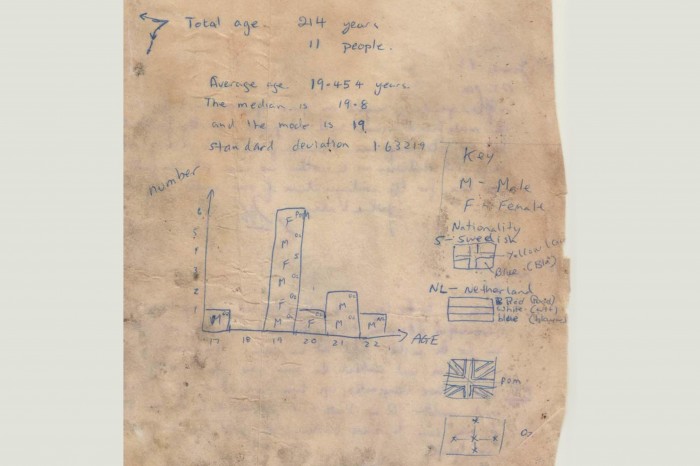 Total age. 214 years
11 people.
Average age 19.454 years
The median is 19.8
and the mode is 19
standard deviation 1.63219
number
6
5
4
3
2
1
F Pom
M
F S
M
F
M
M
F
M
M
M
17 18 19 20 21 22
AGE
Key
M - Male
F - Female
Nationality
S - Swedish
Yellow
Blue (Blå)
NL - Netherland
Red
White
blue
pom
Oz